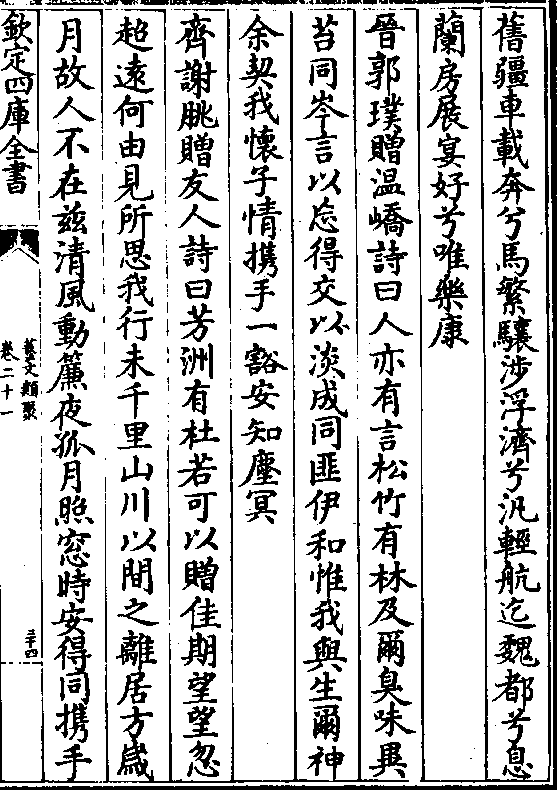 舊疆車載奔兮馬繁驤涉浮濟兮汎輕航迄魏都兮息
蘭房展宴好兮唯樂康
晉郭璞贈温嶠詩曰人亦有言松竹有林及爾臭味異
苔同岑言以忘得交以淡成同匪伊和惟我與生爾神
余契我懷子情携手一豁安知塵冥
齊謝脁贈友人詩曰芳洲有杜若可以贈佳期望望忽
超遠何由見所思我行未千里山川以間之離居方嵗
月故人不在兹清風動簾夜孤月照窓時安得同携手
欽定四庫全書
藝文類聚
卷二十一
三十四